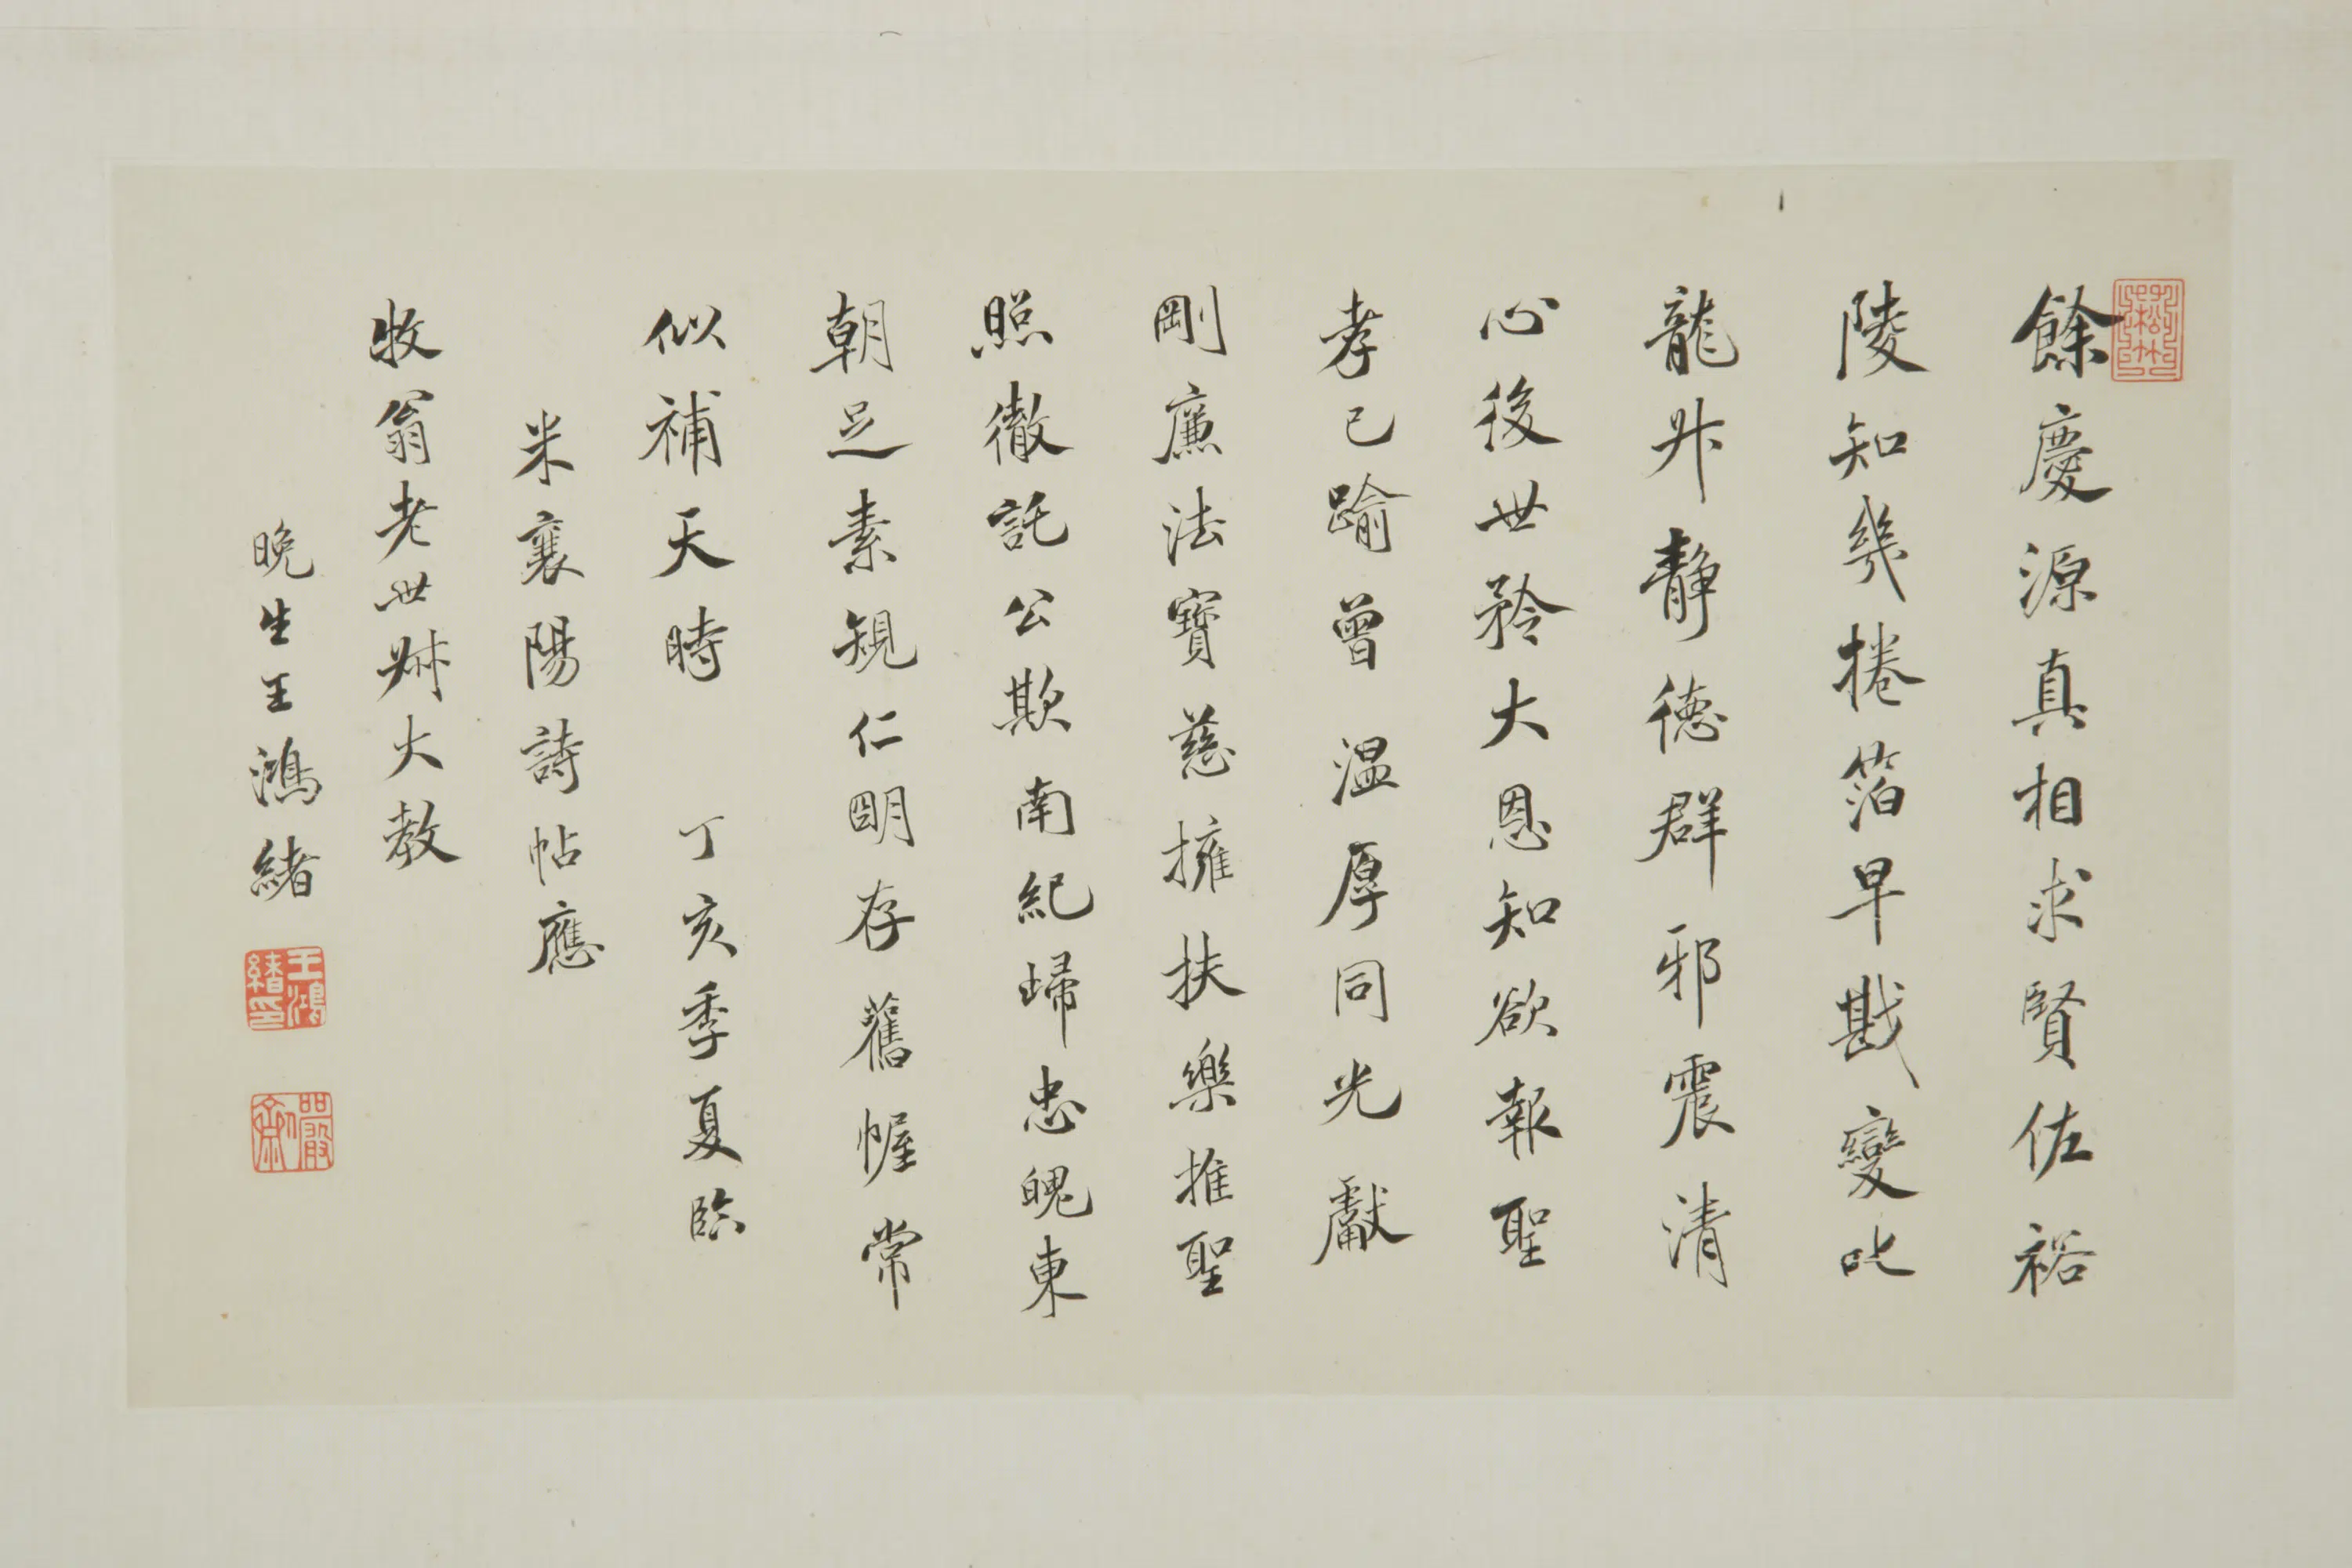 餘慶源真相求賢佐裕
陵知幾捲箔早戡變叱
龍升靜德群邪震清
心後世矜大恩知欲報聖
孝已踰曾溫厚同光獻
剛廉法寶慈擁扶樂推聖
照徹託公欺南紀歸忠魄東
朝足素規仁明存舊幄常
似補天時 丁亥季夏臨
米襄陽詩帖應
牧翁老世叔大教
晚生王鴻緒
王鴻緒印
儼齋